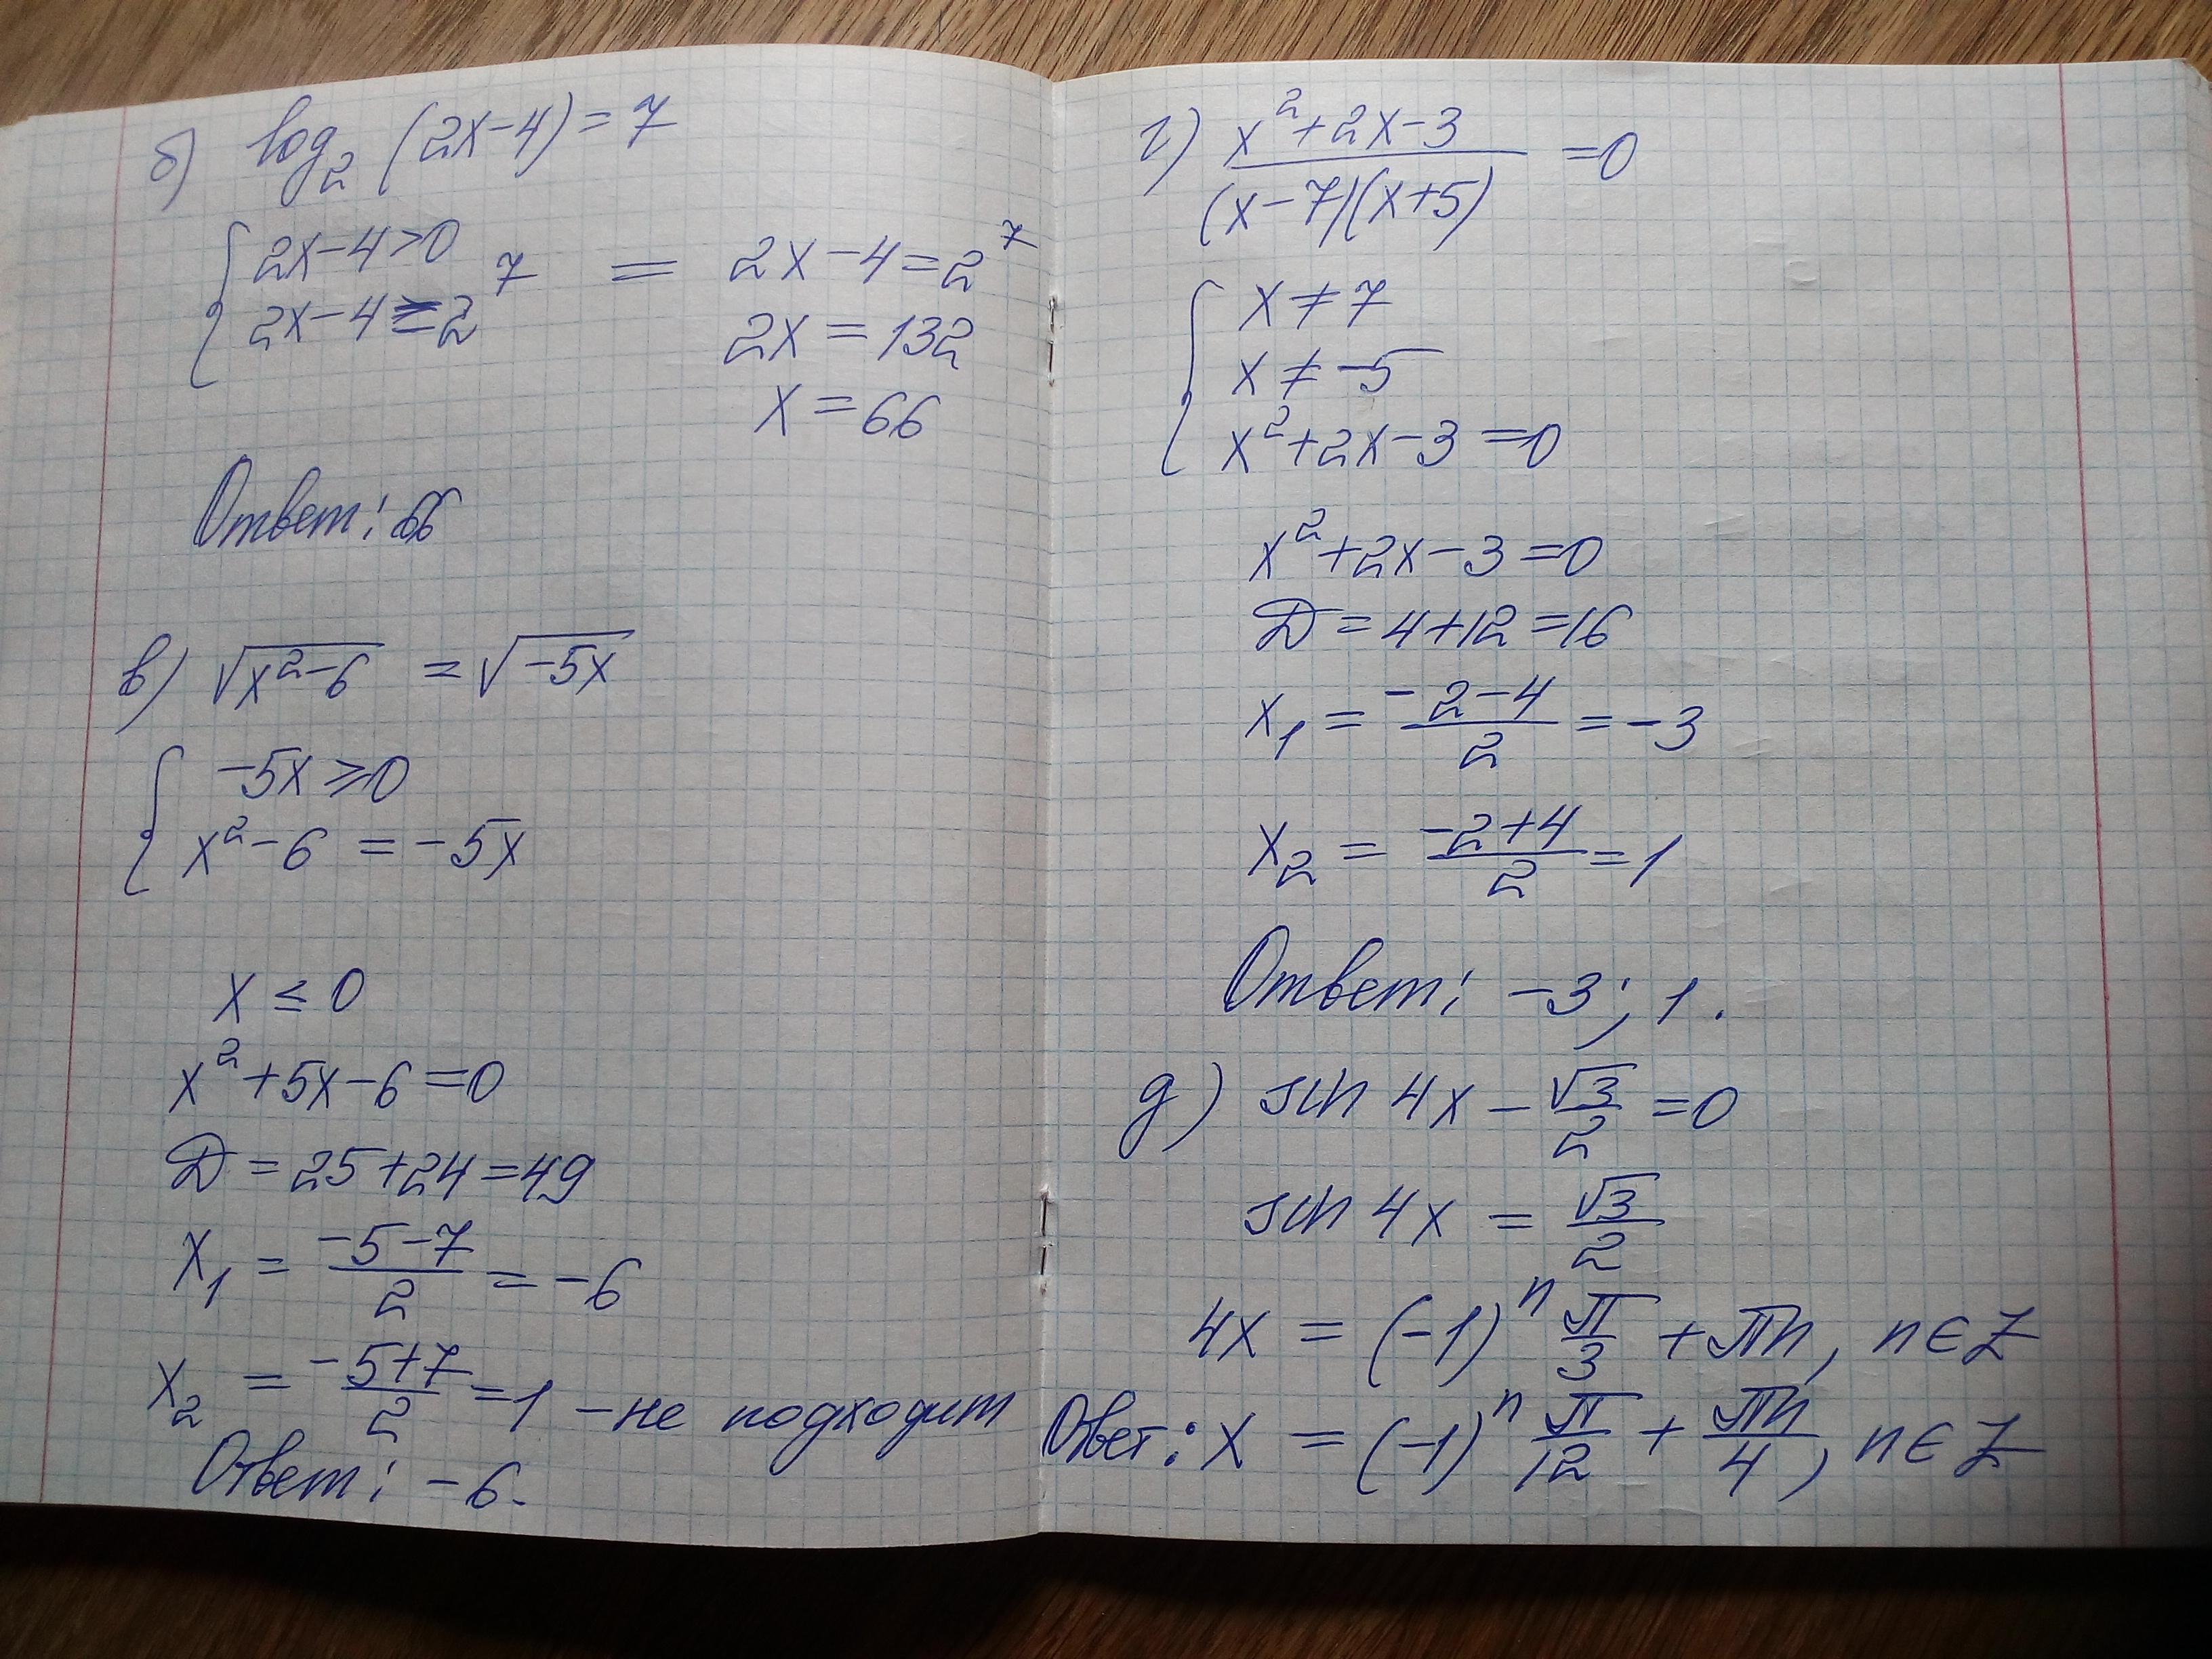 б) log₂ (2x-4)=7
{ 2x-4>0
2x-4=2⁷ = 2x-4=2⁷
2x=132
x=66
Ответ: 66
в) √(x²-6) = √(-5x)
{ -5x≥0
x²-6 = -5x
x ≤ 0
x²+5x-6=0
D=25+24=49
x₁ = (-5-7)/2 = -6
x₂ = (-5+7)/2 = 1 - не подходит
Ответ: -6.
г) (x²+2x-3)/((x-7)(x+5)) =0
{ x≠7
x≠-5
x²+2x-3=0
x²+2x-3=0
D=4+12=16
x₁ = (-2-4)/2 = -3
x₂ = (-2+4)/2 = 1
Ответ: -3; 1.
д) sin 4x - √3/2 =0
sin 4x = √3/2
4x = (-1)ⁿ π/3 + πn, n∈Z
Ответ: x = (-1)ⁿ π/12 + πn/4, n∈Z